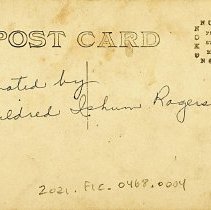 POST CARD
nated by
ildred Ishum Rogers
2021.FIC.0468.0004